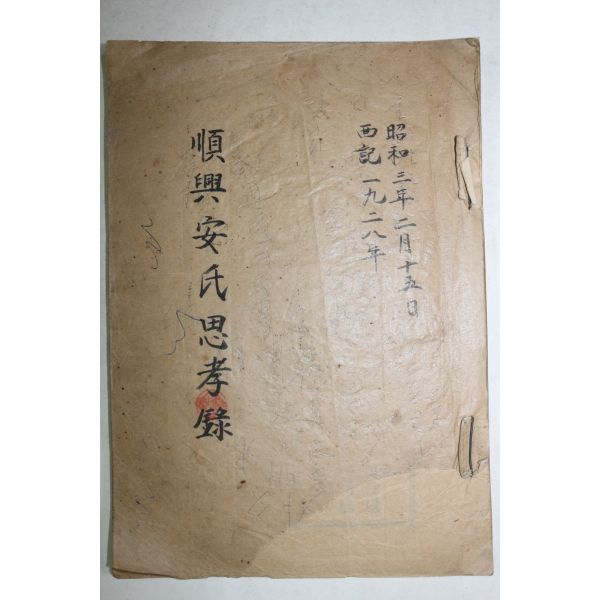 昭和三年二月十五日
西記一九二八年
順興安氏思孝錄